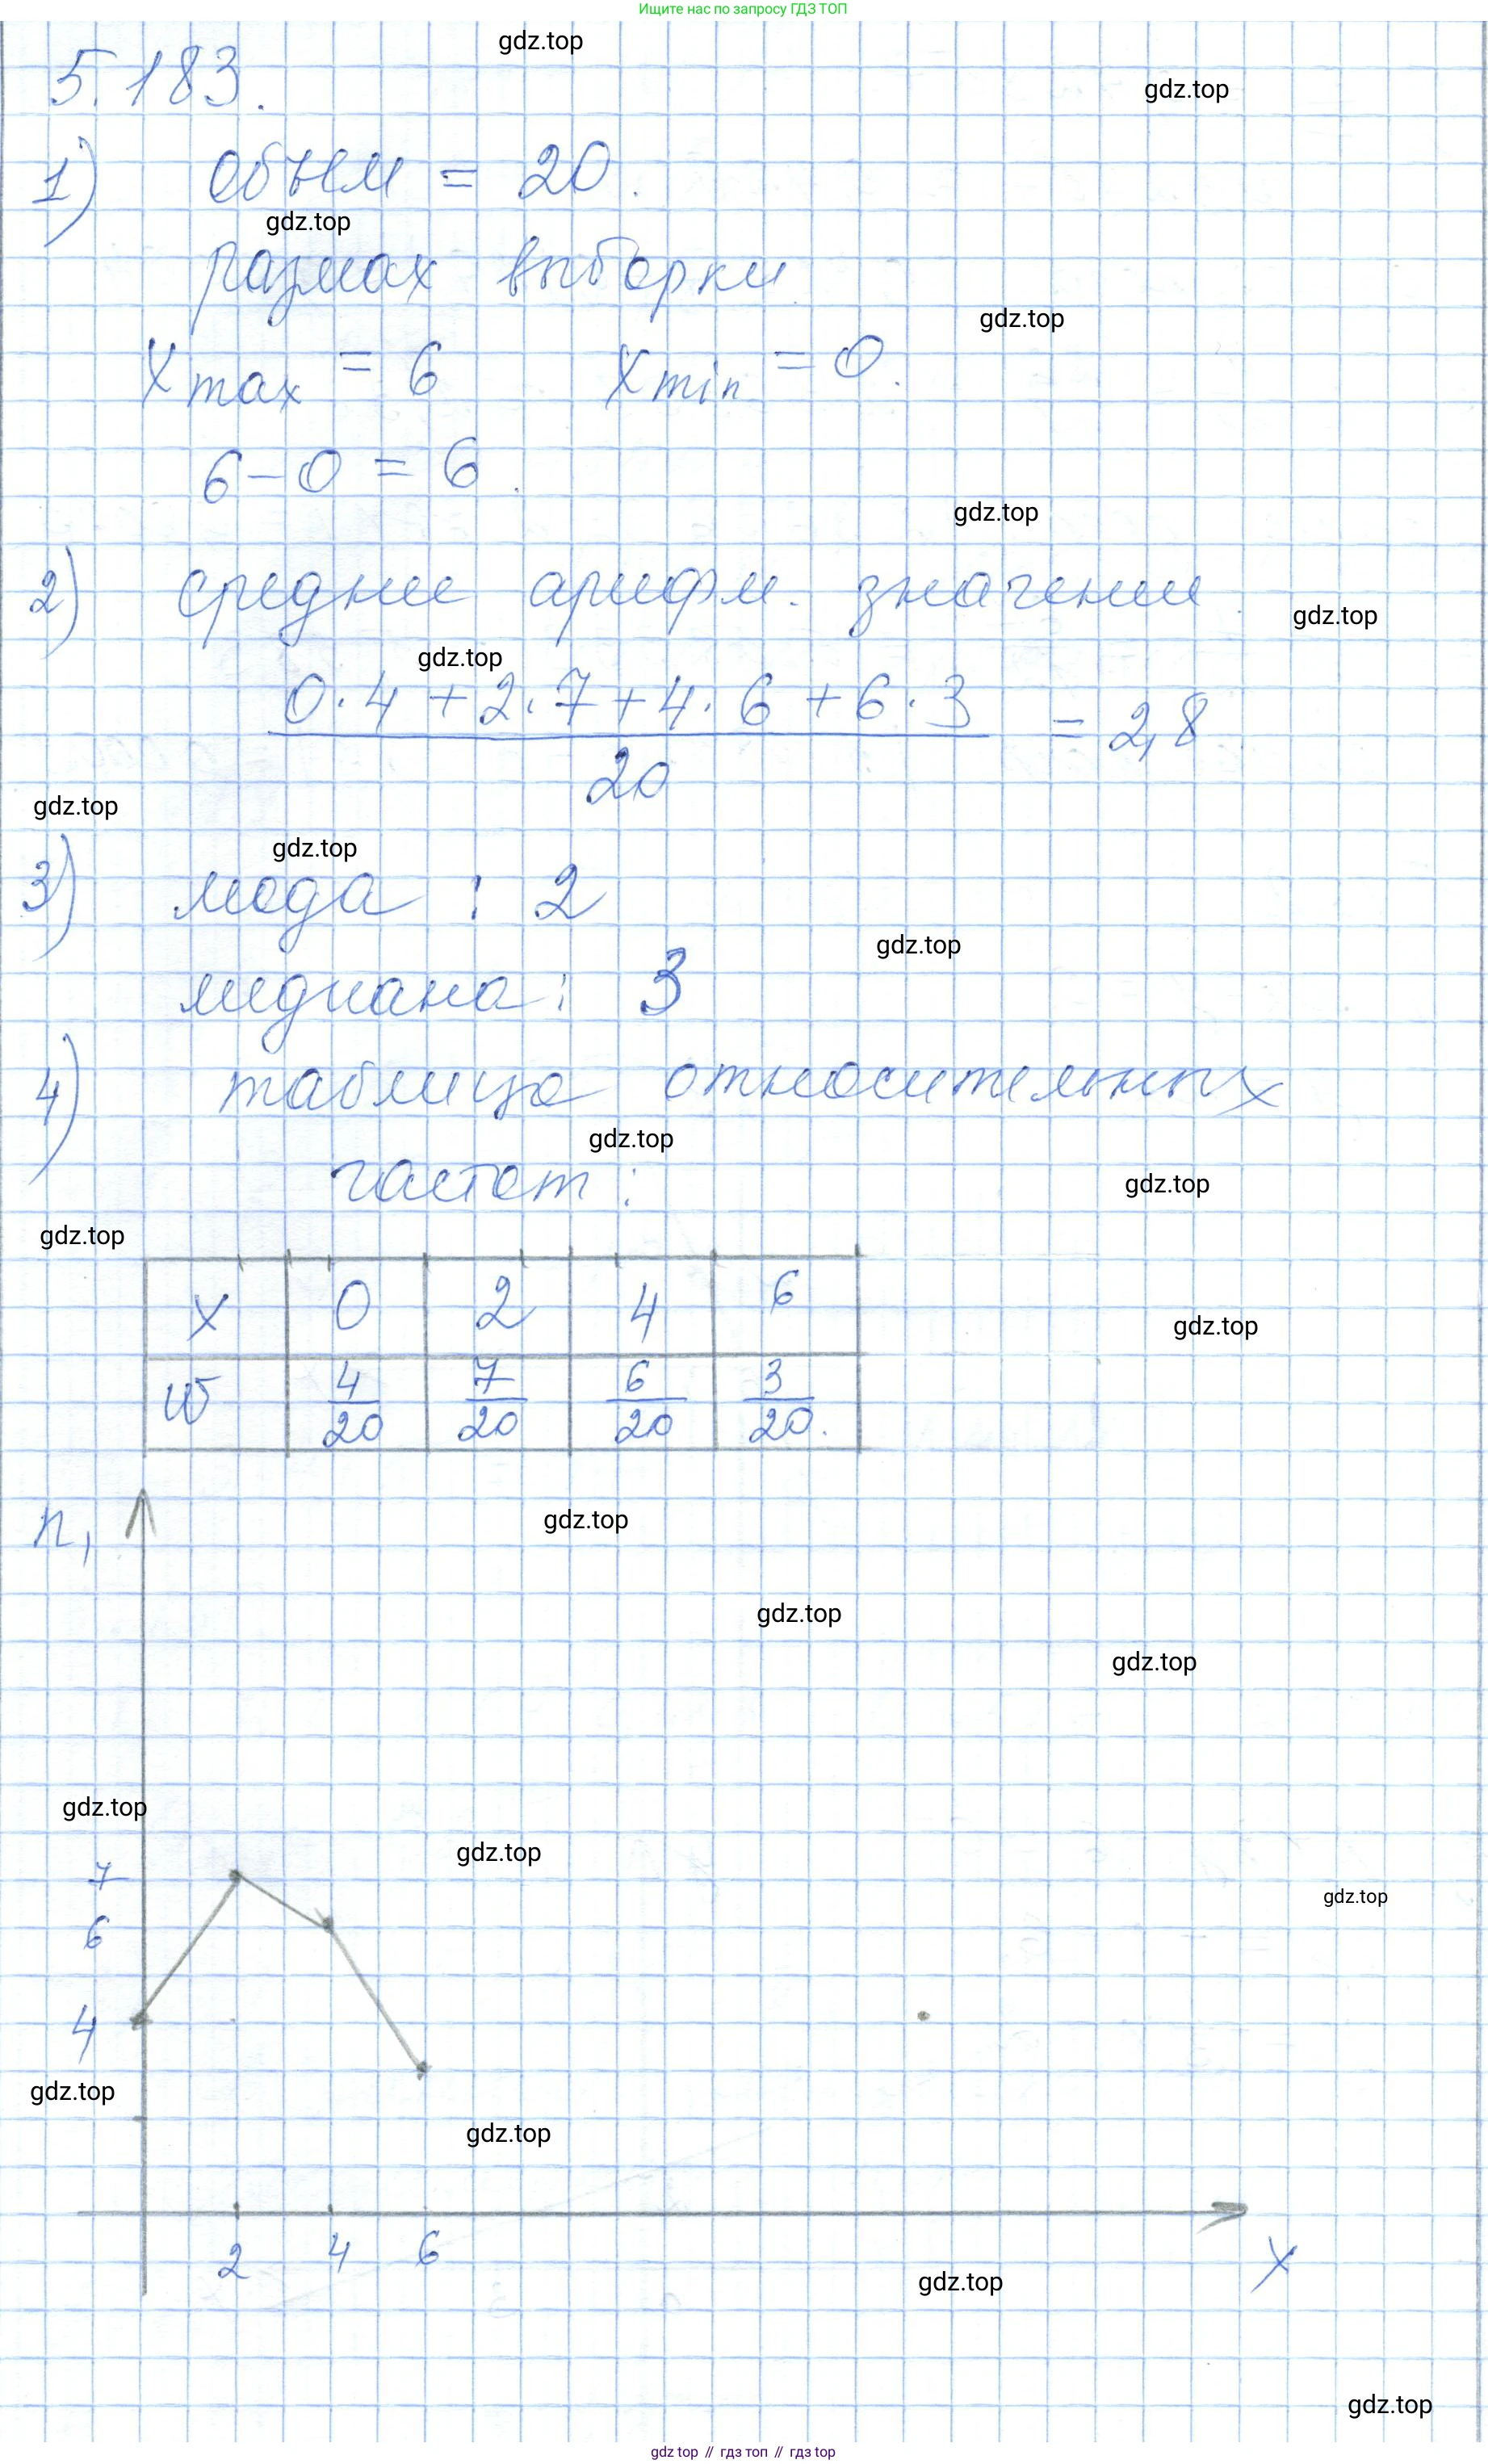 Ищите нас по запросу ГДЗ ТОП
gdz.top
5.183.
gdz.top
1) объем = 20.
gdz.top
размах выборки
gdz.top
x max = 6 x min = 0.
6 - 0 = 6.
gdz.top
2) среднее арифм. значение
gdz.top
gdz.top
0·4 + 2·7 + 4·6 + 6·3 = 2,8
20
gdz.top
gdz.top
3) мода : 2
gdz.top
медиана : 3
4) таблица относительных
gdz.top
частот :
gdz.top
gdz.top
x 0 2 4 6
gdz.top
w 4/20 7/20 6/20 3/20.
n,
gdz.top
gdz.top
gdz.top
gdz.top
gdz.top
7
gdz.top
6
4
gdz.top
gdz.top
2 4 6 x
gdz.top
gdz.top
gdz top // гдз топ // гдз top